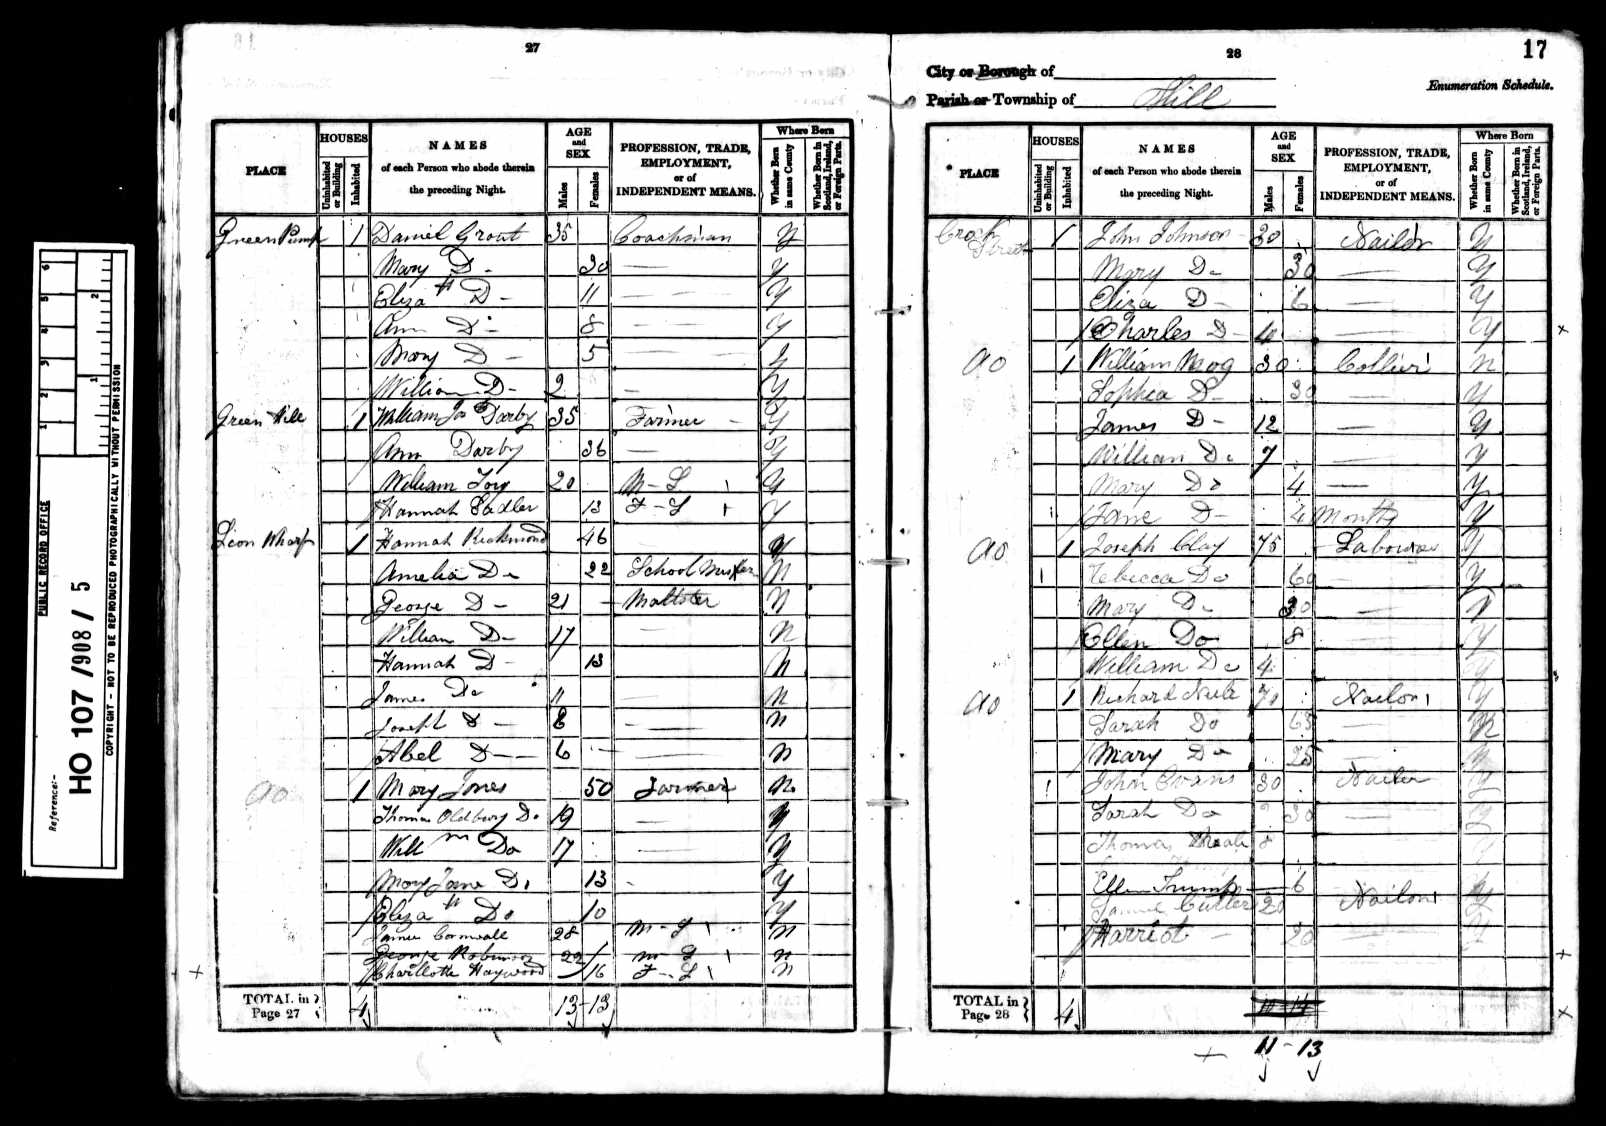 PUBLIC RECORD OFFICE
Reference:-
HO 107 /908 / 5
COPYRIGHT - NOT TO BE REPRODUCED PHOTOGRAPHICALLY WITHOUT PERMISSION
1 2 3 4 5 6
1 2
27
PLACE
HOUSES
Uninhabited or Building
Inhabited
NAMES
of each Person who abode therein
the preceding Night.
AGE and SEX
Males
Females
PROFESSION, TRADE,
EMPLOYMENT,
or of
INDEPENDENT MEANS.
Where Born
Whether Born in same County
Whether Born in Scotland, Ireland, or Foreign Parts.
Green Pump 1 Daniel Grout 35 Coachman Y
Mary D- 30 — Y
Eliza th D- 11 — Y
Ann D- 8 — Y
Mary D- 5 — Y
William D- 2 — Y
Green Hill 1 William Jos Darby 35 Farmer Y
Ann Darby 36 — Y
William 20 M-S Y
Hannah Sadler 13 F-S Y
Lion Wharf 1 Hannah Richmond 46 Y
Amelia Do 22 School N
George D- 21 Maltster N
William D- 17 — N
Hannah D- 13 N
James Do 11 — N
Joseph D- 8 — N
Abel D- 6 — N
do 1 Mary Jones 50 Farmer N
Thomas Oldbury Do 19 — Y
Will m Do 17 Y
Mary Jane Do 13 Y
Eliza th Do 10 Y
James Cornwall 28 M-S N
George Robinson 22 M S N
Charllotte Haywood 16 F-S N
TOTAL in Page 27 } 4 13-13
28
17
City or Borough of
Parish or Township of Hill
Enumeration Schedule.
PLACE
HOUSES
Uninhabited or Building
Inhabited
NAMES
of each Person who abode therein
the preceding Night.
AGE and SEX
Males
Females
PROFESSION, TRADE,
EMPLOYMENT,
or of
INDEPENDENT MEANS.
Where Born
Whether Born in same County
Whether Born in Scotland, Ireland, or Foreign Parts.
Street 1 John Johnson 30 Nailor Y
Mary Do 30 — Y
Eliza D- 6 — Y
Charles D- 4 — Y
do 1 William Mog 30 Collier N
Sophia D- 30 — Y
James D- 12 — Y
William Do 7 — Y
Mary Do 4 — Y
Jane D- 4 Months Y
do 1 Joseph Clay 75 Labourer Y
Rebecca Do 60 — Y
Mary Do 30 — N
Ellen Do 8 — Y
William Do 4 Y
do 1 Richard 70 Nailor Y
Sarah Do 63 — N
Mary Do 25 — Y
John Evans 30 Nailer Y
Sarah Do 30 — Y
Thomas 8
Ellen Trump 6
Samuel Cutler 20 Nailor Y
Harriot — 20 — Y
TOTAL in Page 28 } 4 10-14
11-13